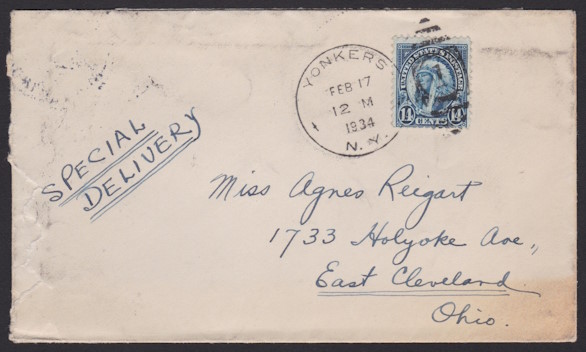 YONKERS
FEB 17
12 M
1934
N.Y.
UNITED STATES POSTAGE
14 CENTS 14
SPECIAL
DELIVERY
Miss Agnes Reigart
1733 Holyoke Ave.,
East Cleveland
Ohio.